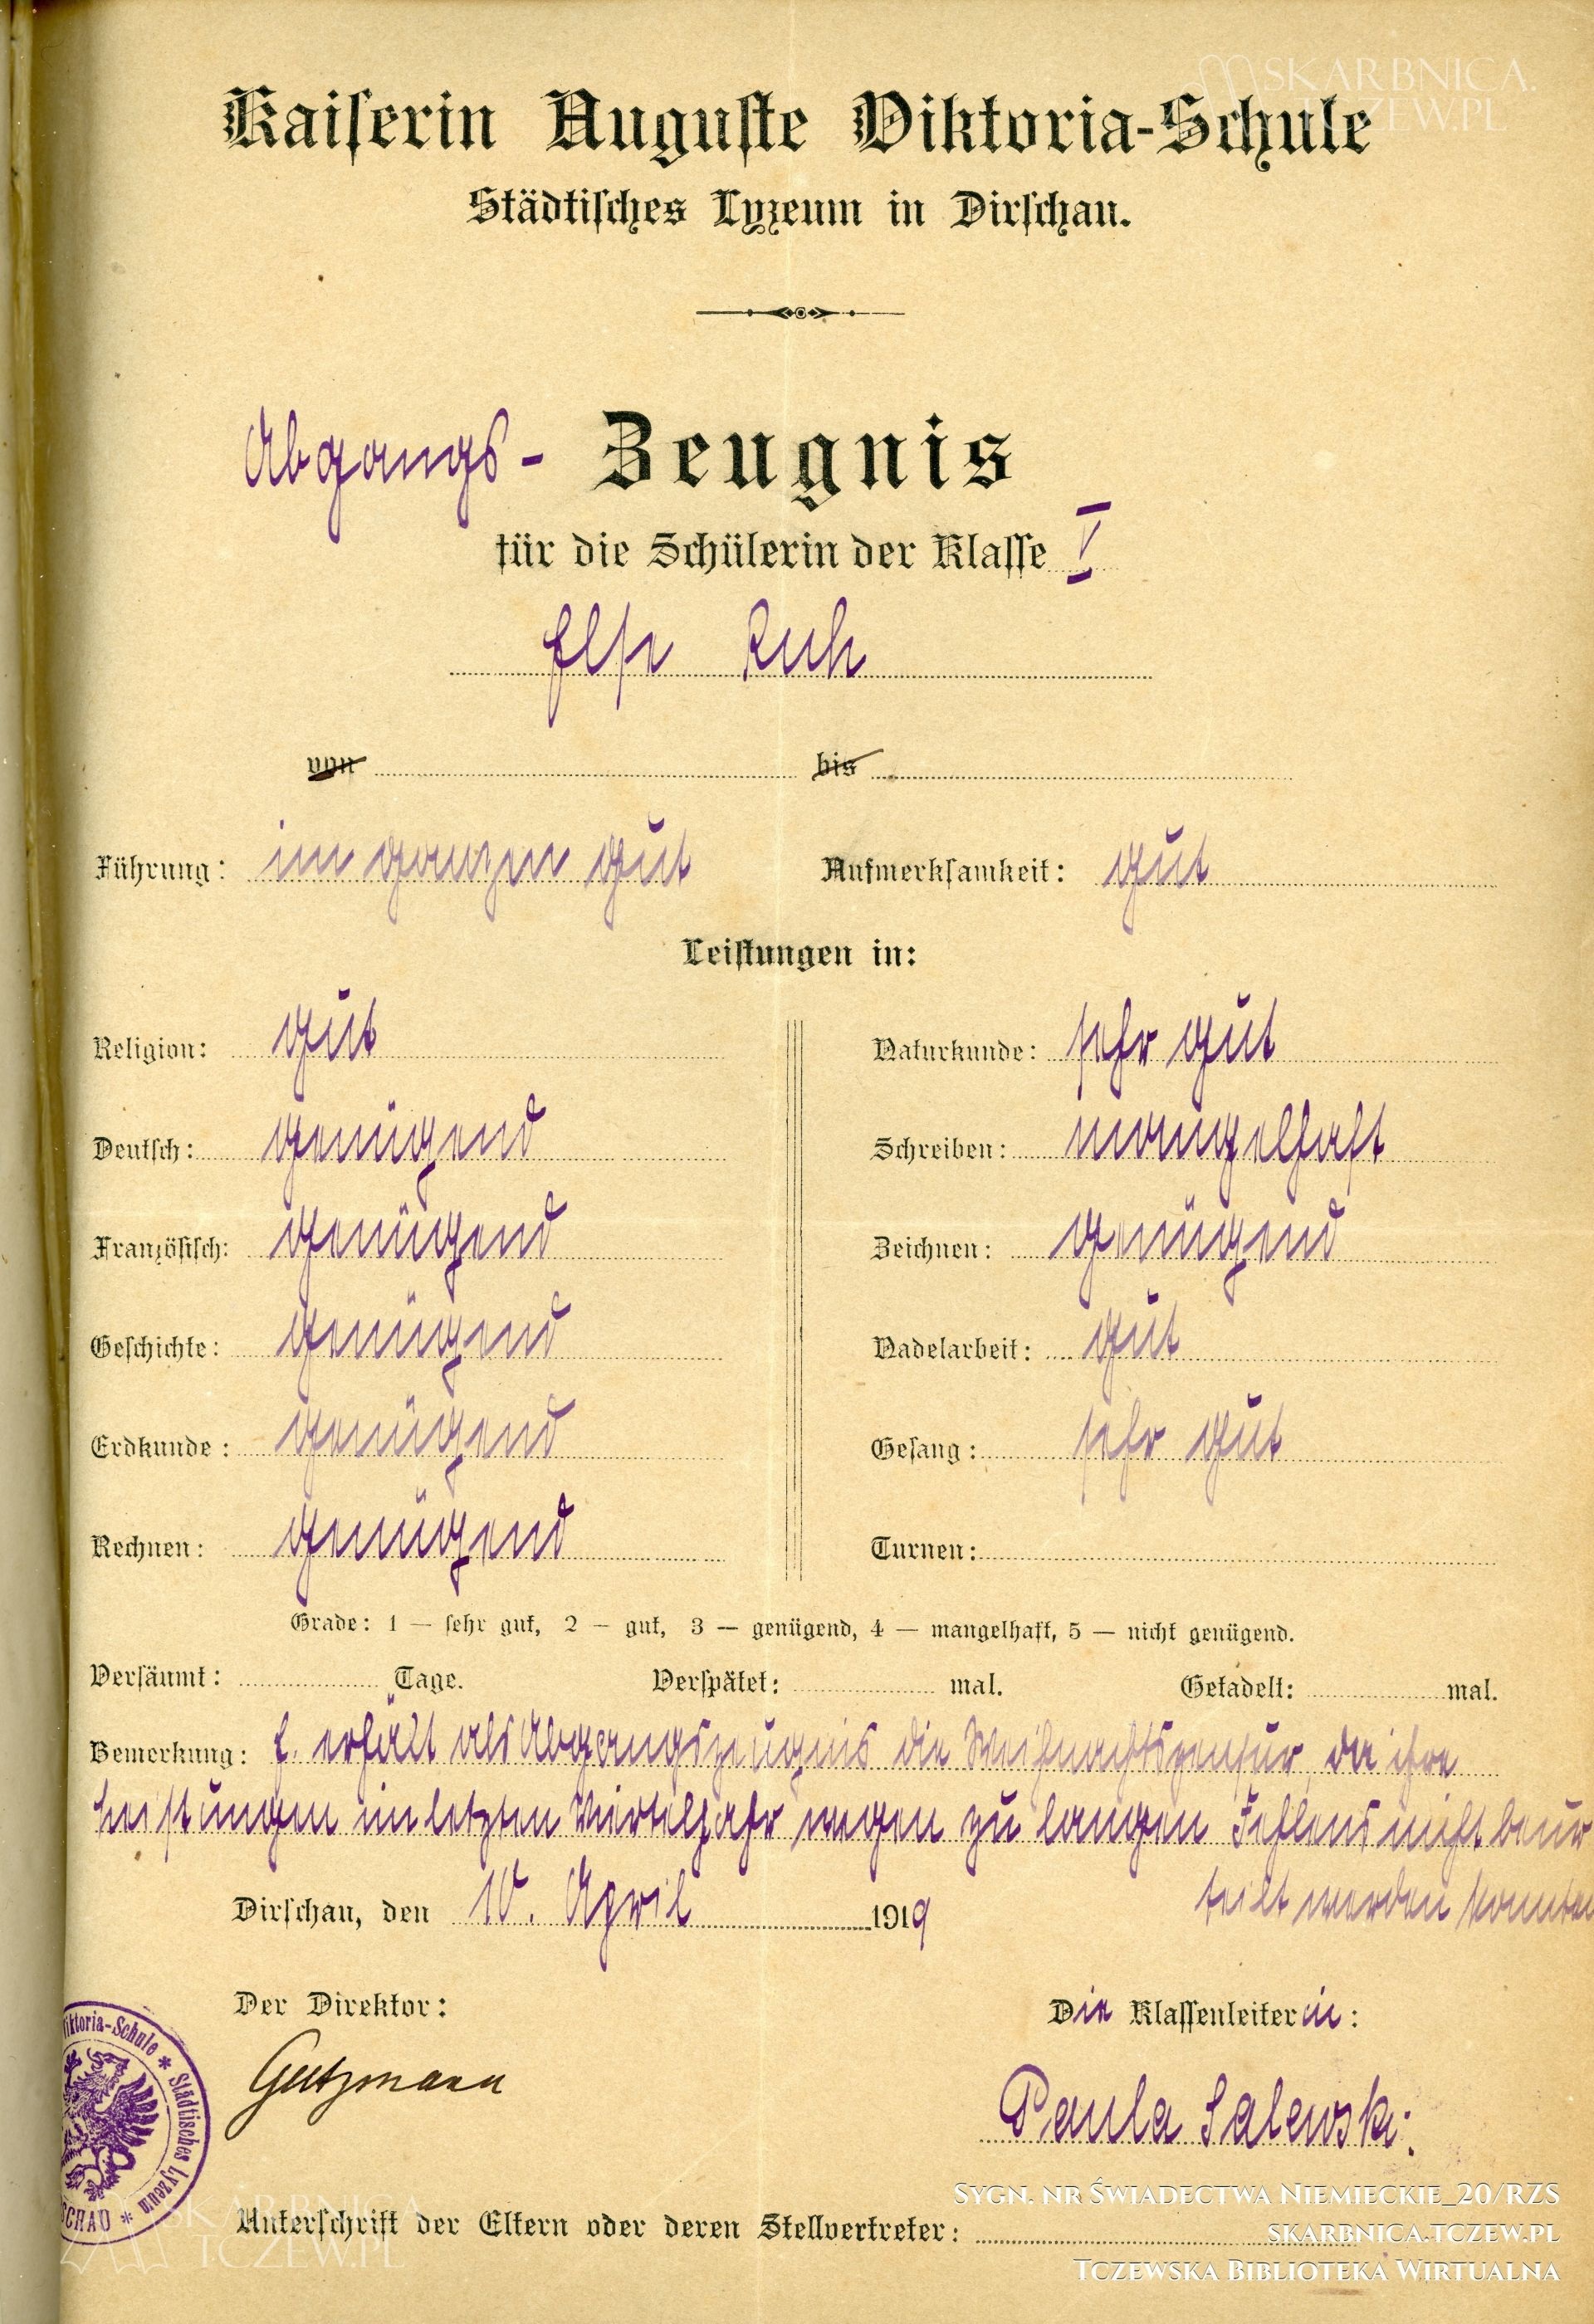 SKARBNICA.
TCZEW.PL
Kaiserin Auguste Viktoria-Schule
Städtisches Lyzeum in Dirschau.
Abgangs- Zeugnis
für die Schülerin der Klasse V
Else
von bis
Führung: im ganzen gut Aufmerksamkeit: gut
Leistungen in:
Religion: gut Naturkunde: sehr gut
Deutsch: genügend Schreiben: mangelhaft
Französisch: genügend Zeichnen: genügend
Geschichte: genügend Nadelarbeit: gut
Erdkunde: genügend Gesang: sehr gut
Rechnen: genügend Turnen:
Grade: 1 — sehr gut, 2 — gut, 3 — genügend, 4 — mangelhaft, 5 — nicht genügend.
Versäumt: Tage. Verspätet: mal. Getadelt: mal.
Bemerkung: E. erhält als Abgangszeugnis die Weihnachtszensur, da ihre
Leistungen im letzten Vierteljahr wegen zu langen Fehlens nicht beur
teilt werden konnten
Dirschau, den 10. April 1919
Der Direktor: Die Klassenleiterin:
Gutzmann
Paula Salewski.
Viktoria-Schule * Städtisches Lyzeum * SCHAU
SKARBNICA.
TCZEW.PL
Unterschrift der Eltern oder deren Stellvertreter:
SYGN. NR ŚWIADECTWA NIEMIECKIE_20/RZS
SKARBNICA.TCZEW.PL
TCZEWSKA BIBLIOTEKA WIRTUALNA